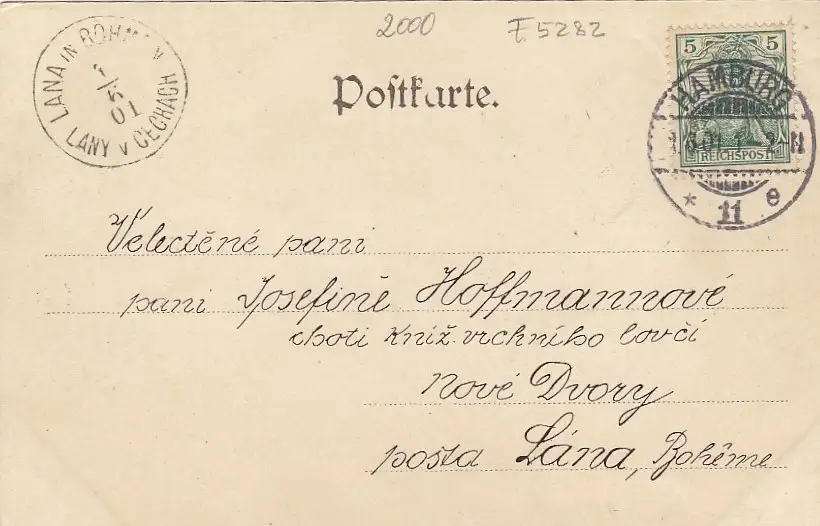 2000 E5282
LANA IN BÖHMEN
01
LANY v ČECHÁCH
5 5
REICHSPOST
HAMBURG
* 11 e
Postkarte.
Velectěné paní
paní Josefině Hoffmannové
choti kníž. vrchního lovčí
Nové Dvory
pošta Lána, Bohême